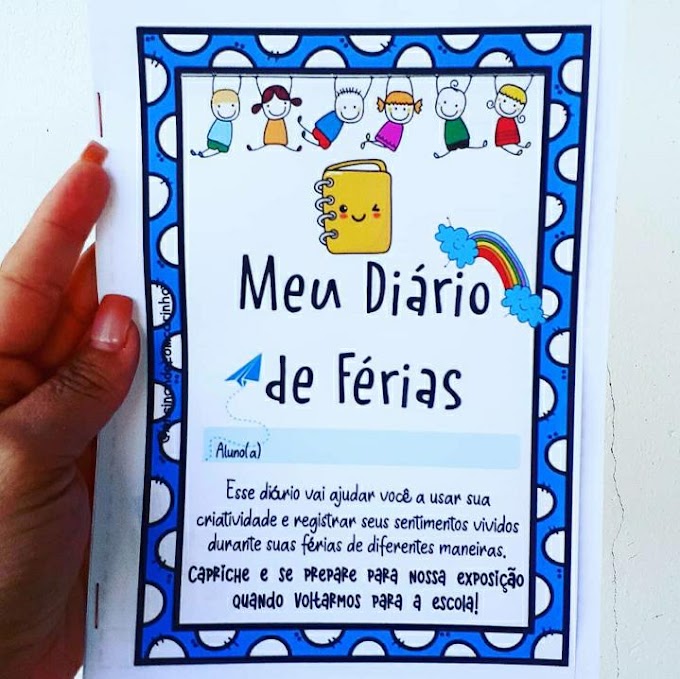 Meu Diário
de Férias
Aluno(a)
Esse diário vai ajudar você a usar sua
criatividade e registrar seus sentimentos vividos
durante suas férias de diferentes maneiras.
Capriche e se prepare para nossa exposição
quando voltarmos para a escola!